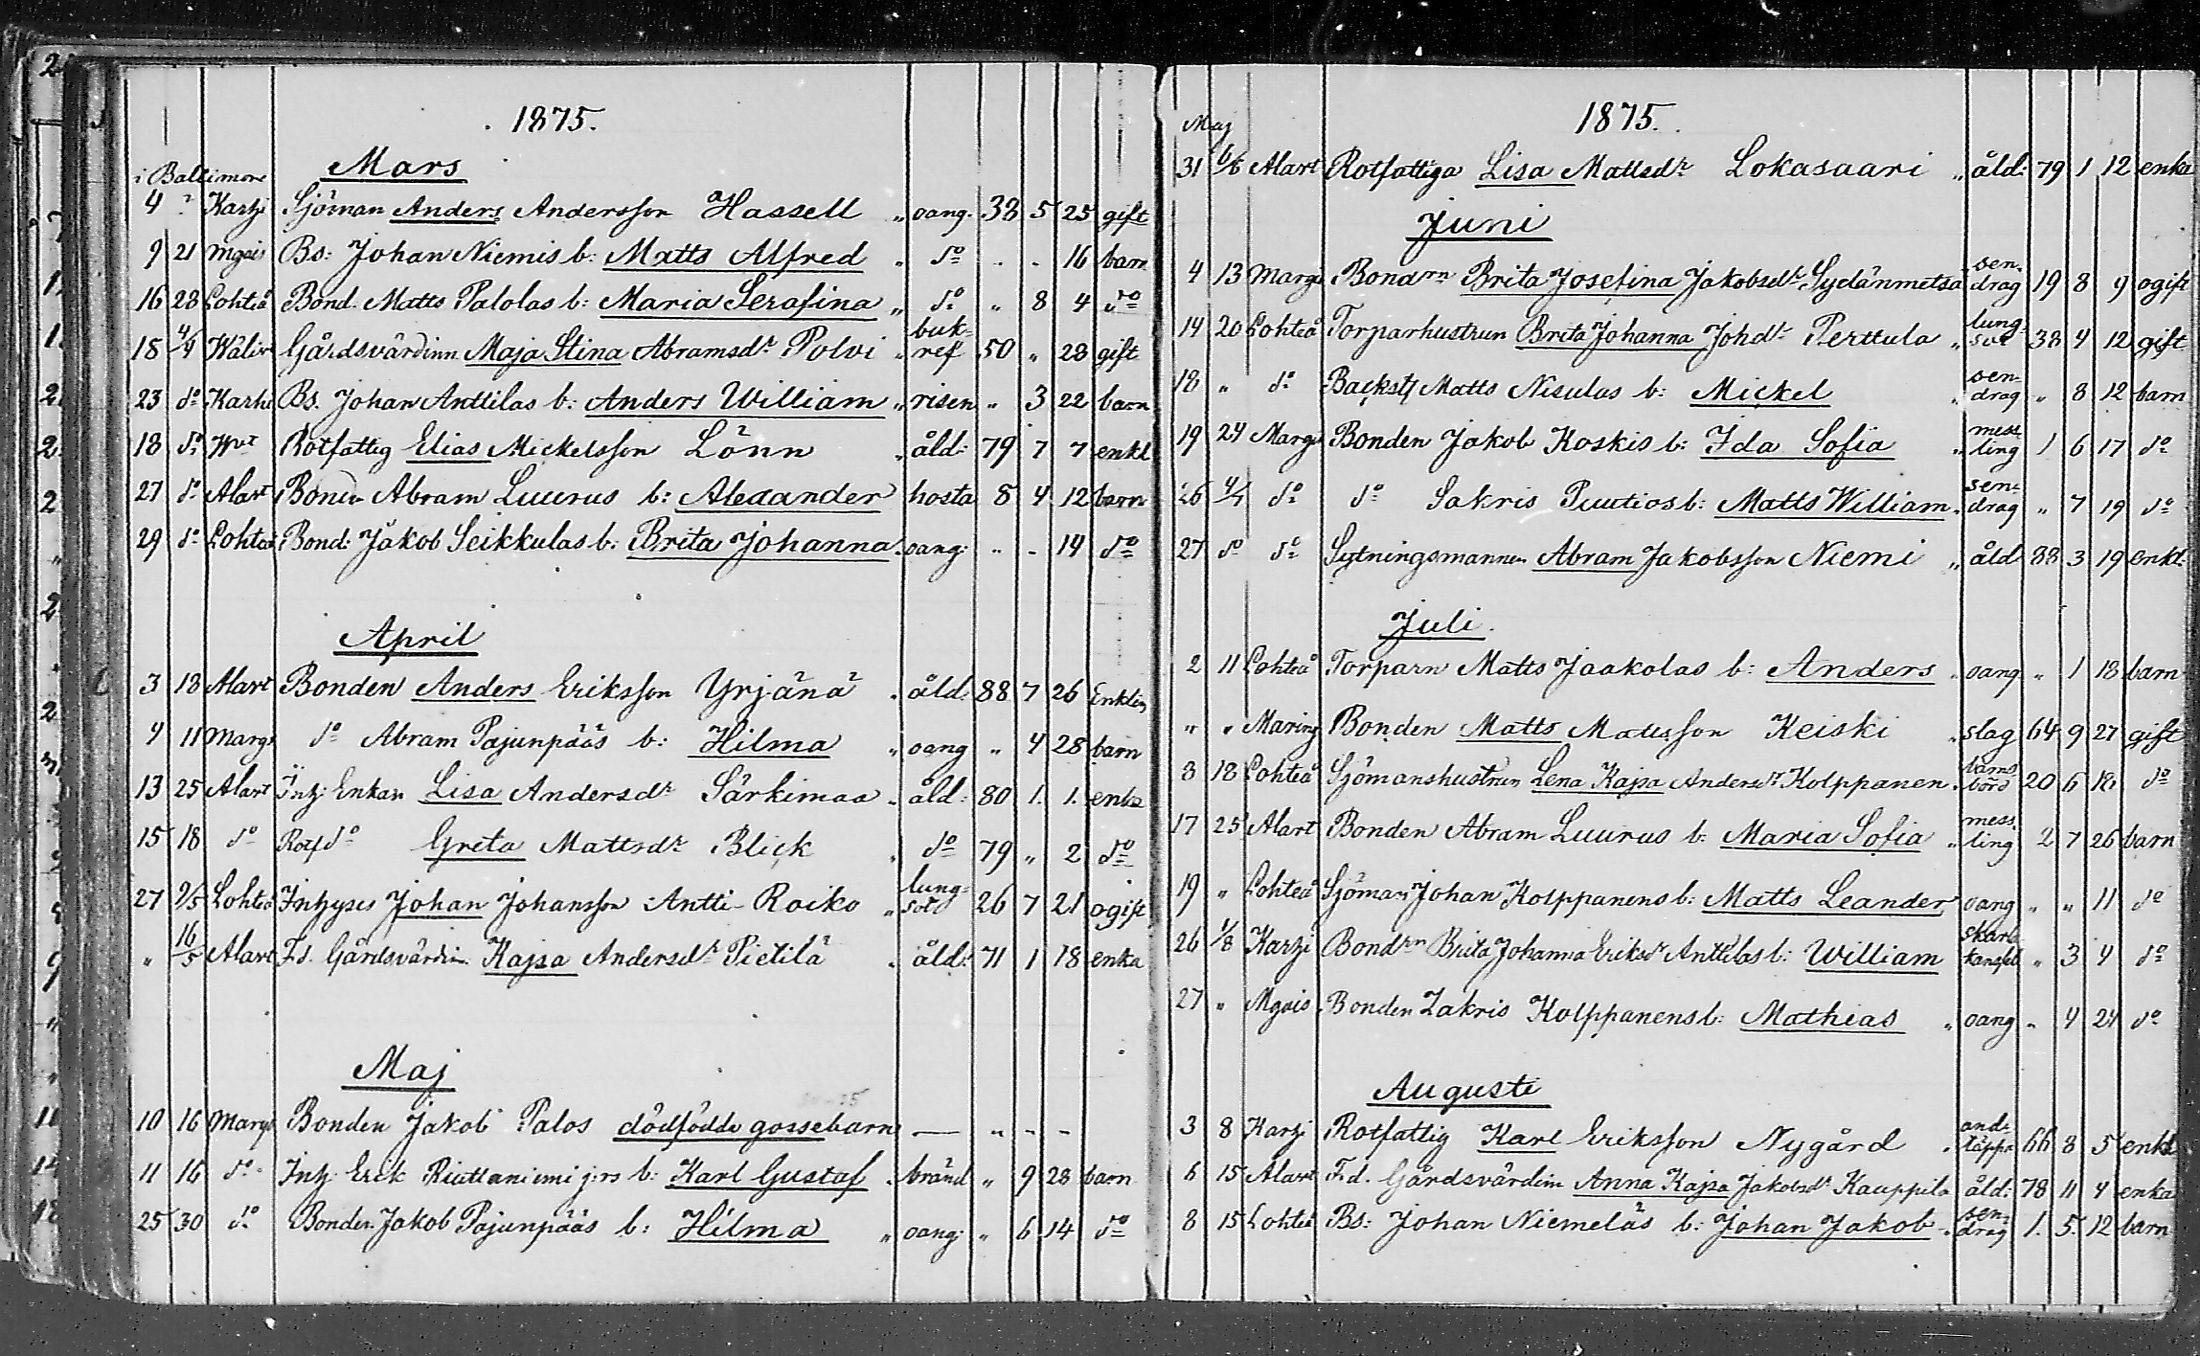 1875.
Mars
i Baltimore
4 ? Karhi Sjöman Anders Andersson Hassell " oang. 38 5 25 gift
9 21 Mgais Bs: Johan Niemis b: Matts Alfred " do . - 16 barn
16 28 Lohteå Bond. Matts Palolas b: Maria Serafina " do " 8 4 do
18 4/4 Wäliv Gårdsvärdinn Maja Stina Abramsdr Polvi " buk-ref 50 " 28 gift
23 do Karhi Bs. Johan Anttilas b: Anders William " risen " 3 22 barn
18 do Rotfattig Elias Mickelsson Lönn " åld: 79 7 7 enkl
27 do Alart Bonden Abram Luurus b: Alexander hosta 8 4 12 barn
29 do Lohteå Bond: Jakob Seikkulas b: Brita Johanna " oang: " - 14 do
April
3 18 Alart Bonden Anders Eriksson Yrjänä " åld: 88 7 26 Enkling
4 11 Margs do Abram Pajunpääs b: Hilma " oang " 4 28 barn
13 25 Alart Inh: Enkan Lisa Andersdr Särkimaa " åld: 80 1. 1. enka
15 18 do Rotf do Greta Mattsdr Blick " do 79 " 2 do
27 9/5 Lohteå Inhyses Johan Johansson Antti-Roiko " lung-sot 26 7 21 ogift
" 16/5 Alart F.d. Gårdsvärdin Kajsa Andersdr Pietilä " åld: 71 1 18 enka
Maj
10 16 Margs Bonden Jakob Palos dödfödde gossebarn — " - -
11 16 do Inh: Erik Riuttaniemi j:rs b: Karl Gustaf " bränd " 9 28 barn
25 30 do Bonden Jakob Pajunpääs b: Hilma " oang: " 6 14 do
1875.
Maj
31 6/6 Alart Rotfattiga Lisa Mattsdr Lokasaari " åld: 79 1 12 enka
Juni
4 13 Margs Bondrn Brita Josefina Jakobsdr Sydänmetsä sen-drag 19 8 9 ogift
14 20 Lohteå Torparhustrun Brita Johanna Johdr Perttula " lung-sot 38 4 12 gift
18 " do Backst Matts Nisulas b: Mickel " sen-drag " 8 12 barn
19 24 Margs Bonden Jakob Koskis b: Ida Sofia " mess-ling 1 6 17 do
26 4/7 do do Sakris Puutios b: Matts William " sen-drag " 7 19 do
27 do do Sytningsmannen Abram Jakobsson Niemi " åld 88 3 19 enkl:
Juli.
2 11 Lohteå Torparn Matts Jaakolas b: Anders " oang " 1 18 barn
" " Maring Bonden Matts Mattsson Keiski " slag 64 9 27 gift
8 18 Lohteå Sjömanshustrun Lena Kajsa Andersdr Kolppanen " barns börd 20 6 18 do
17 25 Alart Bonden Abram Luurus b: Maria Sofia " mess-ling 2 7 26 barn
19 " Lohteå Sjöman Johan Kolppanens b: Matts Leander oang " " 11 do
26 1/8 Karhi Bondrn Brita Johanna Eriksdr Anttilas b: William skarlkansfeb " 3 4 do
27 " Mgais Bonden Zakris Kolppanens b: Mathias " oang " 4 24 do
Augusti
3 8 Karhi Rotfattig Karl Eriksson Nygård " and-täppa 66 8 5 enkl
6 15 Alart F.d. Gårdsvärdin Anna Kajsa Jakobsdr Kauppila åld: 78 11 4 enka
8 15 Lohteå Bs: Johan Niemeläs b: Johan Jakob " sen-drag 1. 5. 12 barn